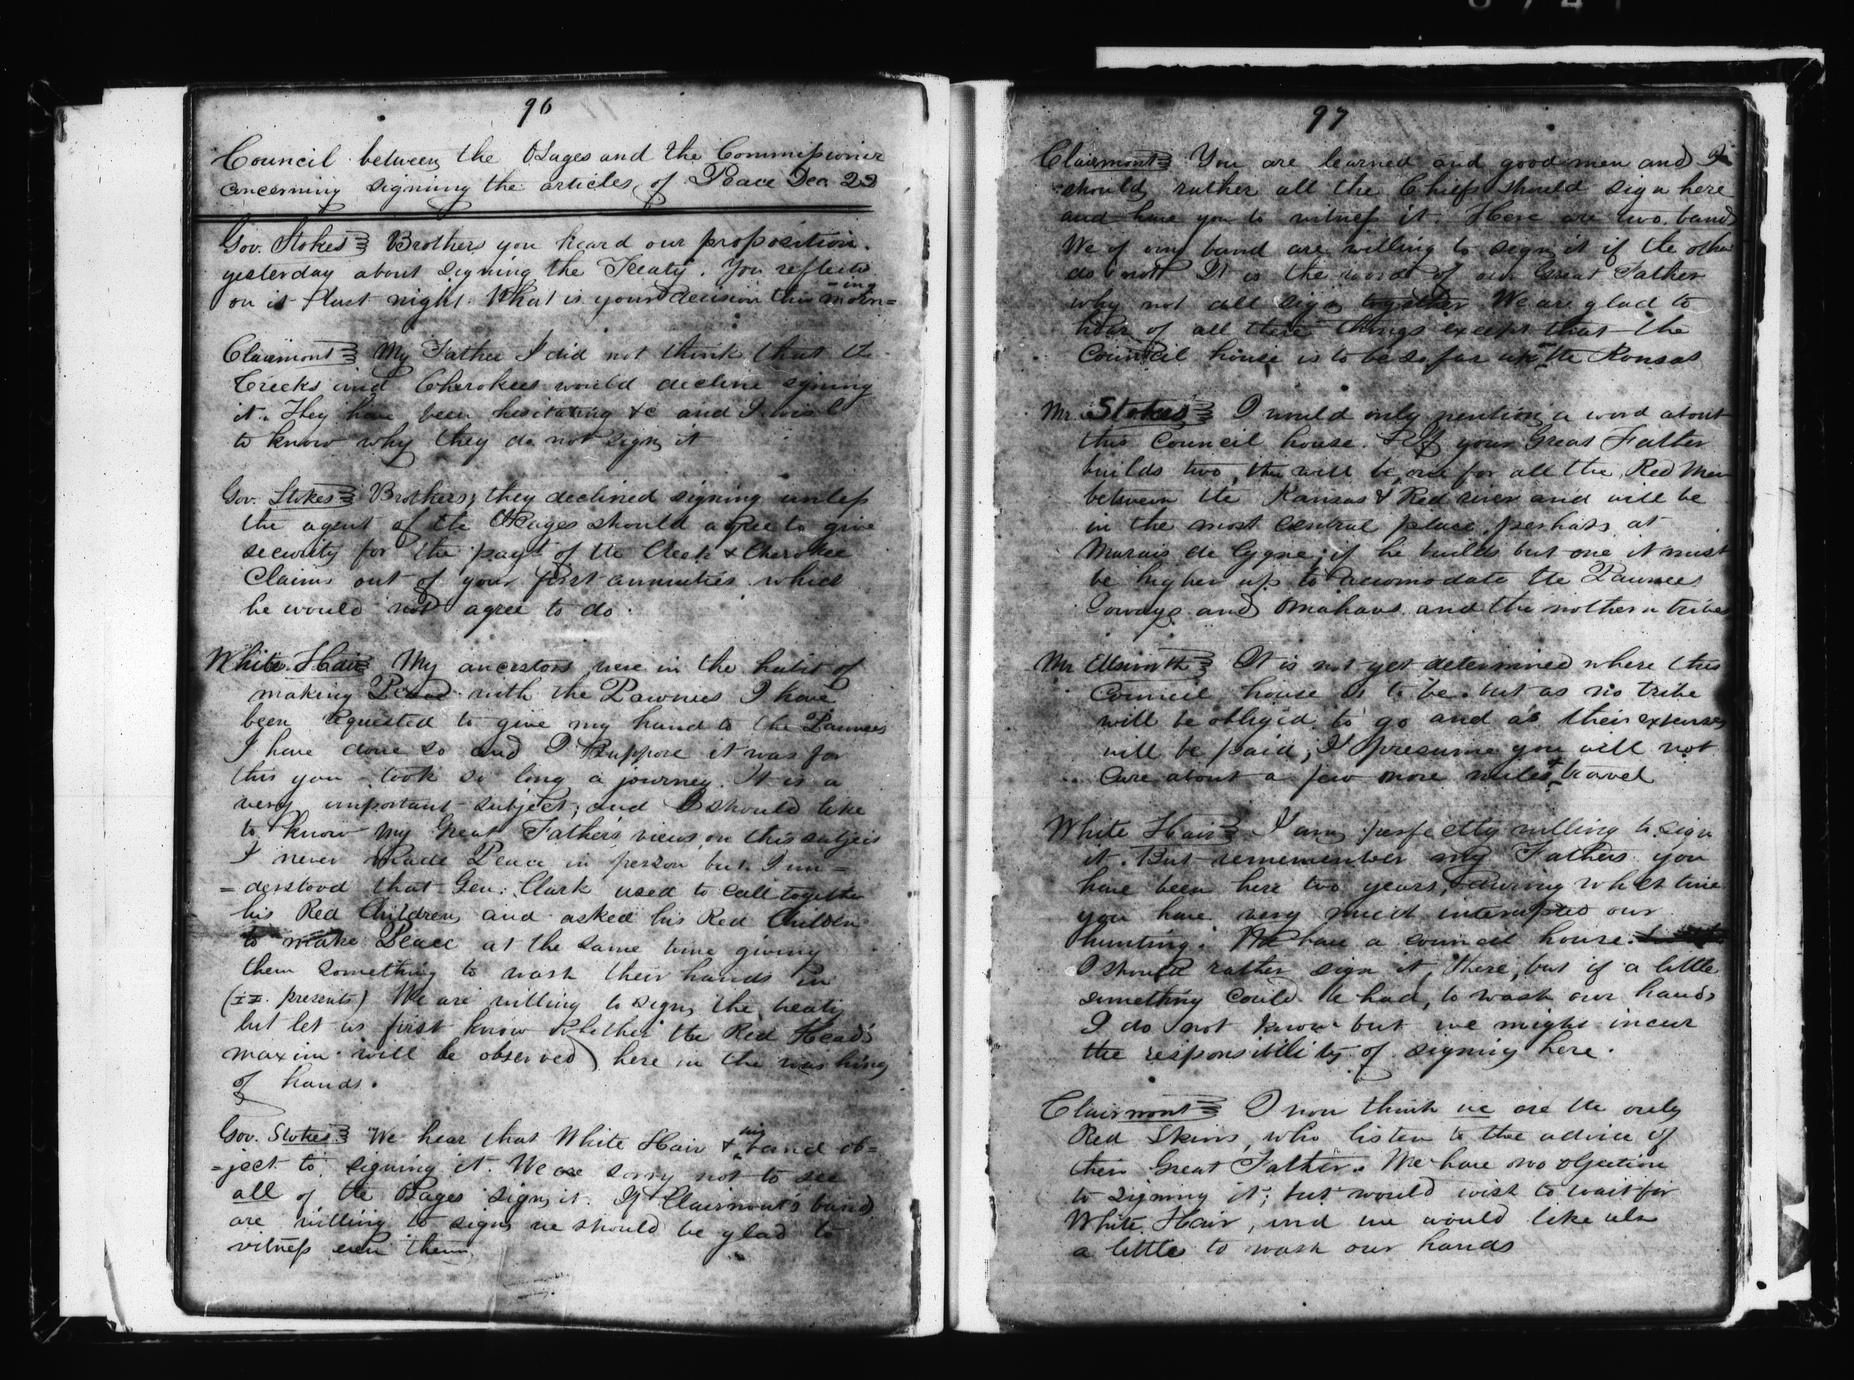 96
Council between the Osages and the Commissioner
concerning signing the articles of Peace Dec 22
Gov. Stokes Brothers you heard our proposition
yesterday about signing the Treaty. You reflected
on it last night. What is your decision this morn=
=ing
Clairmont My Father I did not think that the
Creeks and Cherokees would decline signing
it. They have been hesitating &c and I wish
to know why they do not sign it
Gov. Stokes Brothers; they declined signing unless
the agent of the Osages should agree to give
security for the payt of the Creek & Cherokee
Claims out of your first annuities which
he would not agree to do.
White Hair My ancestors were in the habit of
making Peace with the Pawnees I have
been requested to give my hand to the Pawnees
I have done so and I suppose it was for
this you took so long a journey. It is a
very important subject; and I should like
to know my Great Father's views on this subject
I never made Peace in person but I un=
=derstood that Gen: Clark used to call together
his Red Children and asked his Red Children
to make Peace at the same time giving
them something to wash their hands in
(i.e. presents) We are willing to sign the treaty
but let us first know whether the Red Head's
maxim will be observed here in the washing
of hands.
Gov. Stokes We hear that White Hair & his band ob=
=ject to signing it. We are sorry not to see
all of the Osages sign it. If Clairmont's band
are willing to sign we should be glad to
witness even them
97
Clairmont You are learned and good men and I
should rather all the Chiefs should sign here
and have you to witness it. Here are two bands
We of our band are willing to sign it if the other
do not It is the word of our Great Father
why not all sign together We are glad to
hear of all these things except that the
Council house is to be so far up the Konsas
Mr. Stokes I would only mention a word about
this Council house. If your Great Father
builds two, the will be one for all the Red Men
between the Kansas & Red river and will be
in the most central place, perhaps at
Marais de Cygne; if he builds but one it must
be higher up to accomodate the Pawnees
Ioways and Omahaws and the nothern tribes
Mr Ellsworth It is not yet determined where this
Council house is to be. but as no tribe
will be obliged to go and as their expenses
will be paid, I presume you will not
care about a few more miles travel
White Hair I am perfectly willing to sign
it. But remember my Fathers you
have been here two years, during which time
you have very much interupted our
hunting. We have a council house.
I should rather sign it there, but if a little
something could be had, to wash our hands
I do not know but we might incur
the responsibility of signing here.
Clairmont I now think we are the only
Red Skins, who listen to the advice of
their Great Father. We have no objection
to signing it; but would wish to wait for
White Hair, and we would like also
a little to wash our hands